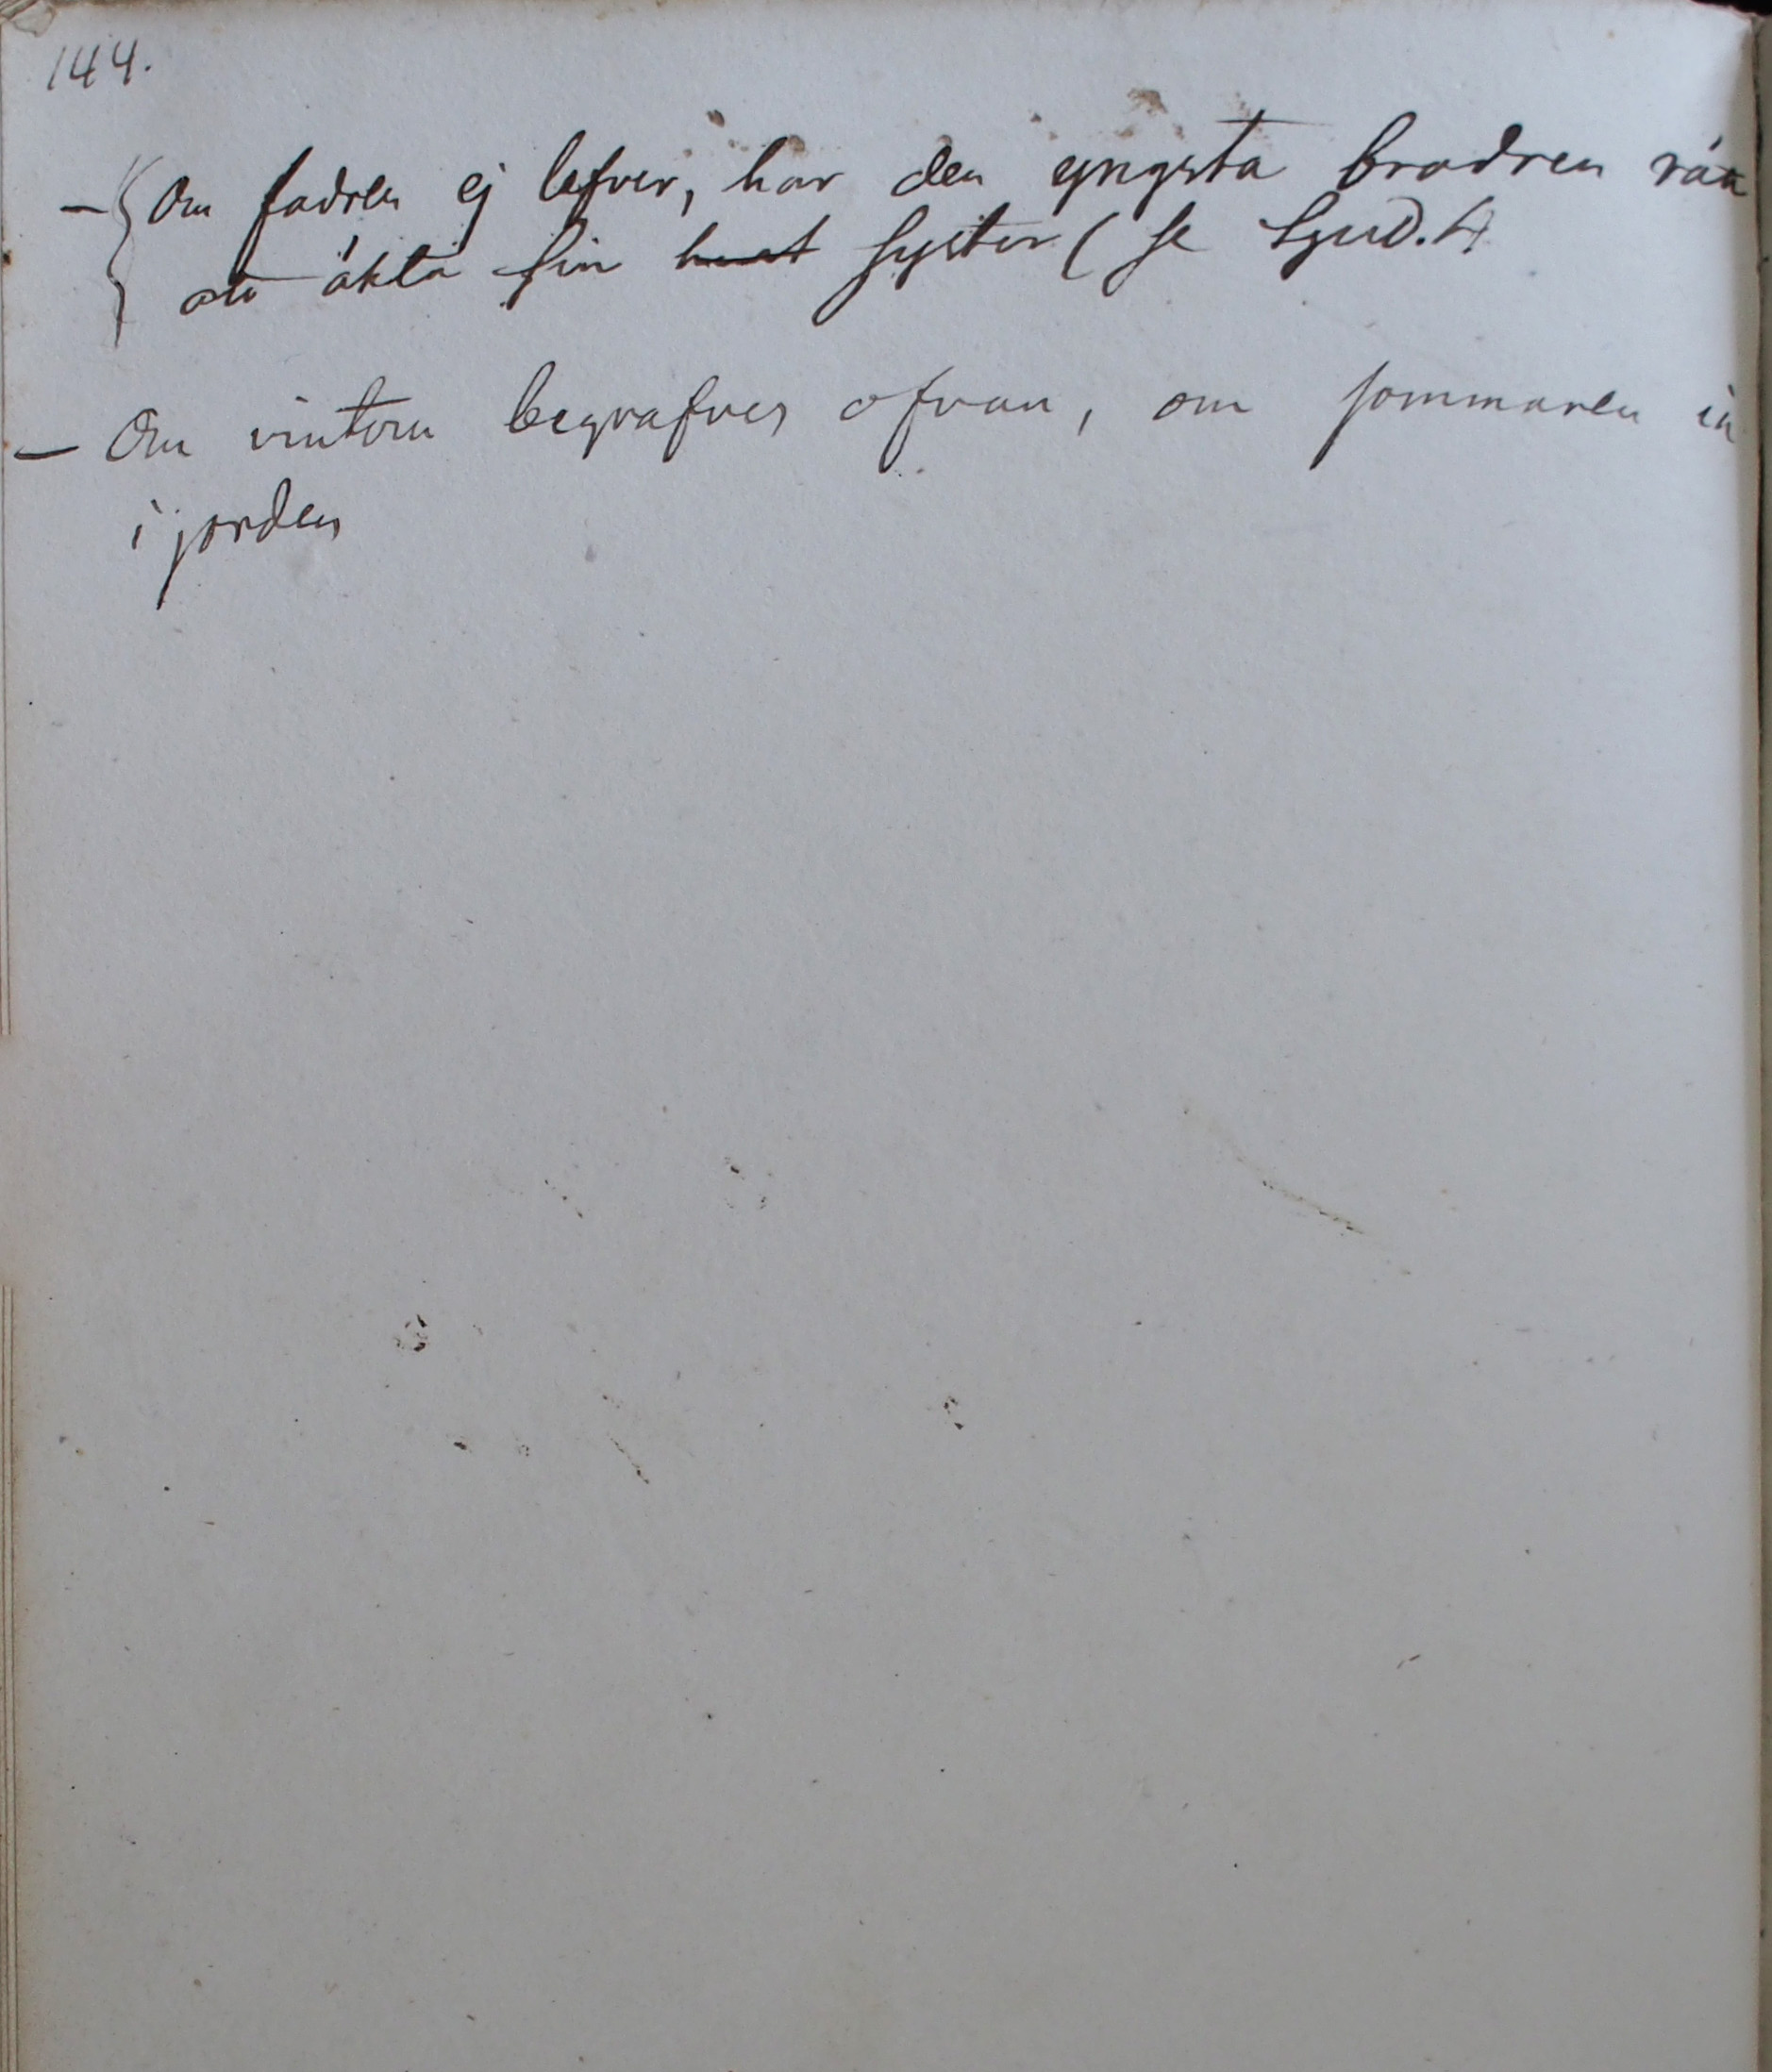 144.
– Om fadren ej lefver, har den yngsta brodren rätt
att äkta sin syster ( se Ljud. 4
– Om vintern begrafves ofvan, om sommaren in
i jorden